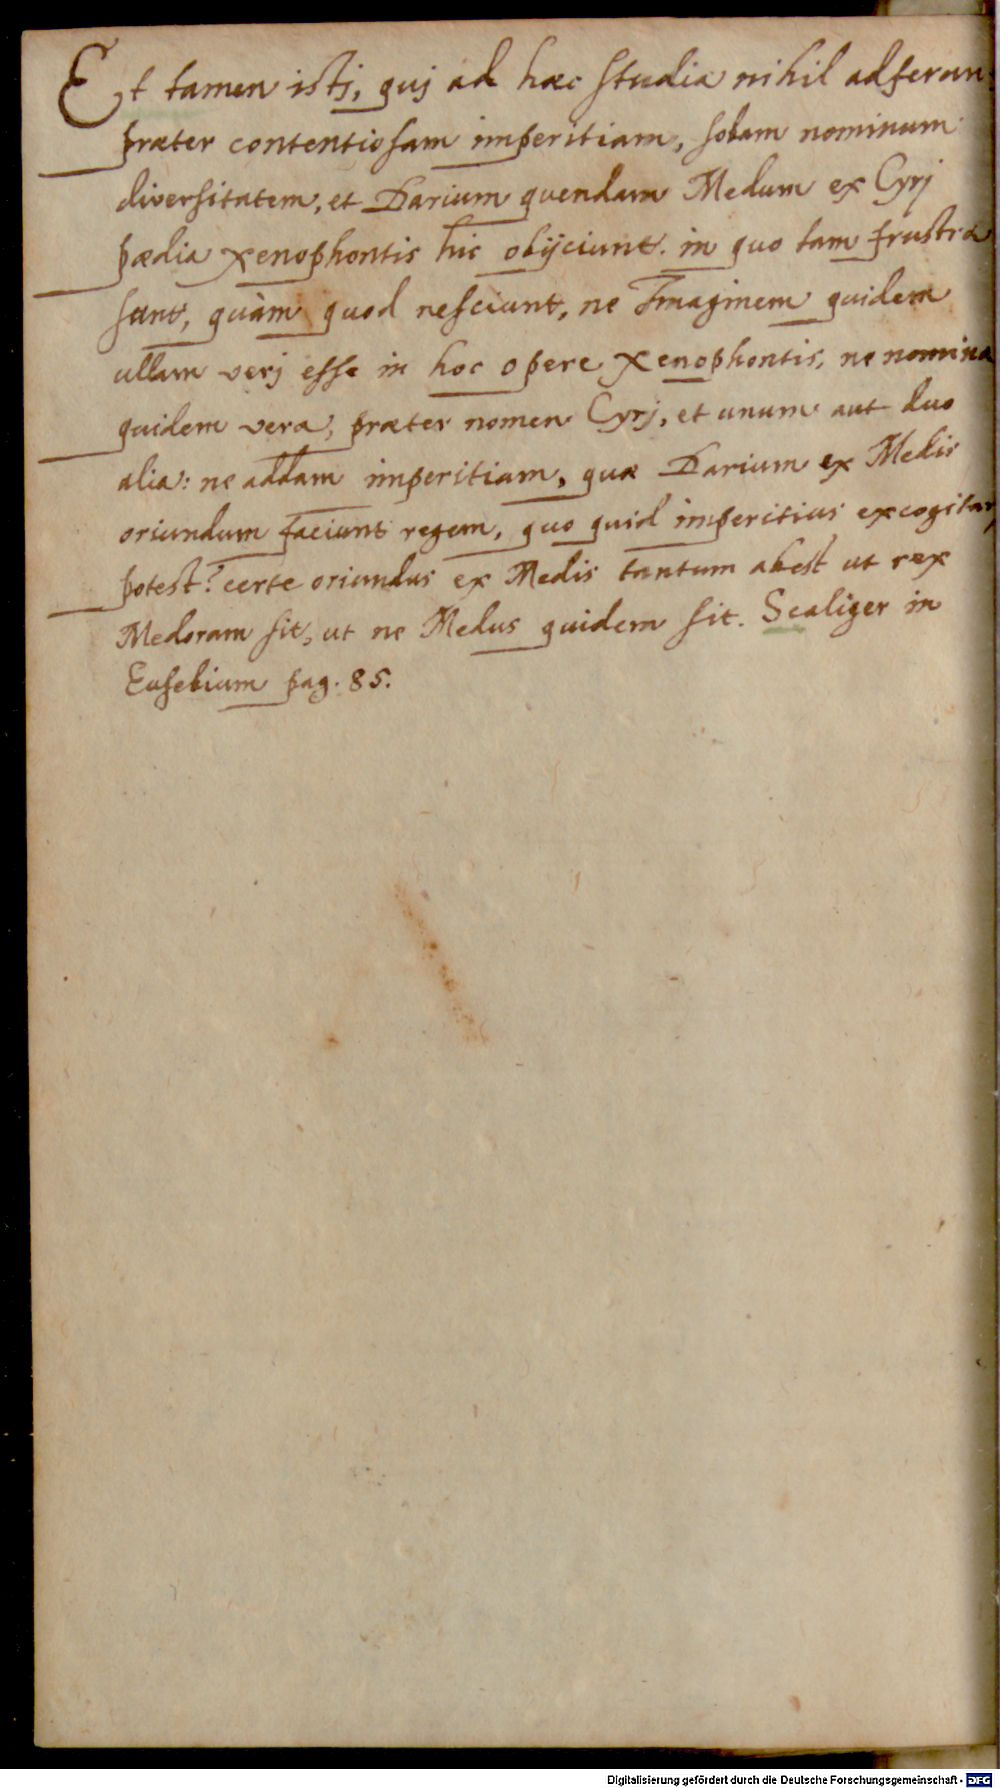 Et tamen istj, quj ad hæc studia nihil adferun
præter contentiosam imperitiam, solam nominum
diversitatem, et Darium quendam Medum ex Cyrj
pædia Xenophontis hic obijciunt. in quo tam frustra
sunt, quàm quod nesciunt, ne Imaginem quidem
ullam verj esse in hoc opere Xenophontis, ne nomina
quidem vera, præter nomen Cyrj, et unum aut duo
alia: ne addam imperitiam, quæ Darium ex Medis
oriundum faciunt regem, quo quid imperitius excogitarj
potest? certe oriundus ex Medis tantum abest ut rex
Medorum sit, ut ne Medus quidem sit. Scaliger in
Eusebium pag. 85.
Digitalisierung gefördert durch die Deutsche Forschungsgemeinschaft - DFG